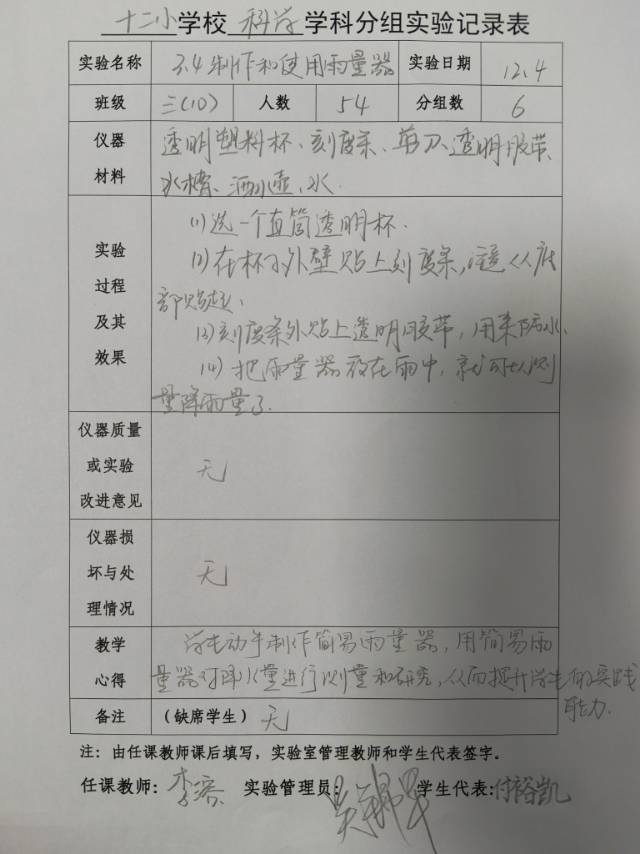 十二小学校 科学 学科分组实验记录表
实验名称 3.4制作和使用雨量器 实验日期 12.4
班级 三(10) 人数 54 分组数 6
仪器材料
透明塑料杯、刻度条、剪刀、透明胶带、
水槽、洒水壶、水.
实验过程及其效果
(1)选一个直筒透明杯.
(2)在杯的外壁贴上刻度条,注意从底
部贴起、
(3)刻度条外贴上透明胶带,用来防水、
(4)把雨量器放在雨中,就可以测
量降雨量了.
仪器质量或实验改进意见
无
仪器损坏与处理情况
无
教学心得
学生动手制作简易雨量器,用简易雨
量器对降水量进行测量和研究,从而提升学生的实践
能力.
备注 (缺席学生) 无
注:由任课教师课后填写,实验室管理教师和学生代表签字。
任课教师: 李 实验管理员: 学生代表:付裕凯